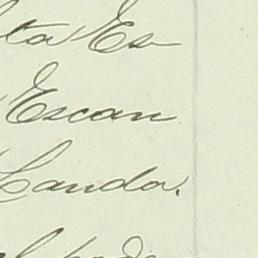 ta Es
Escan
Canda.